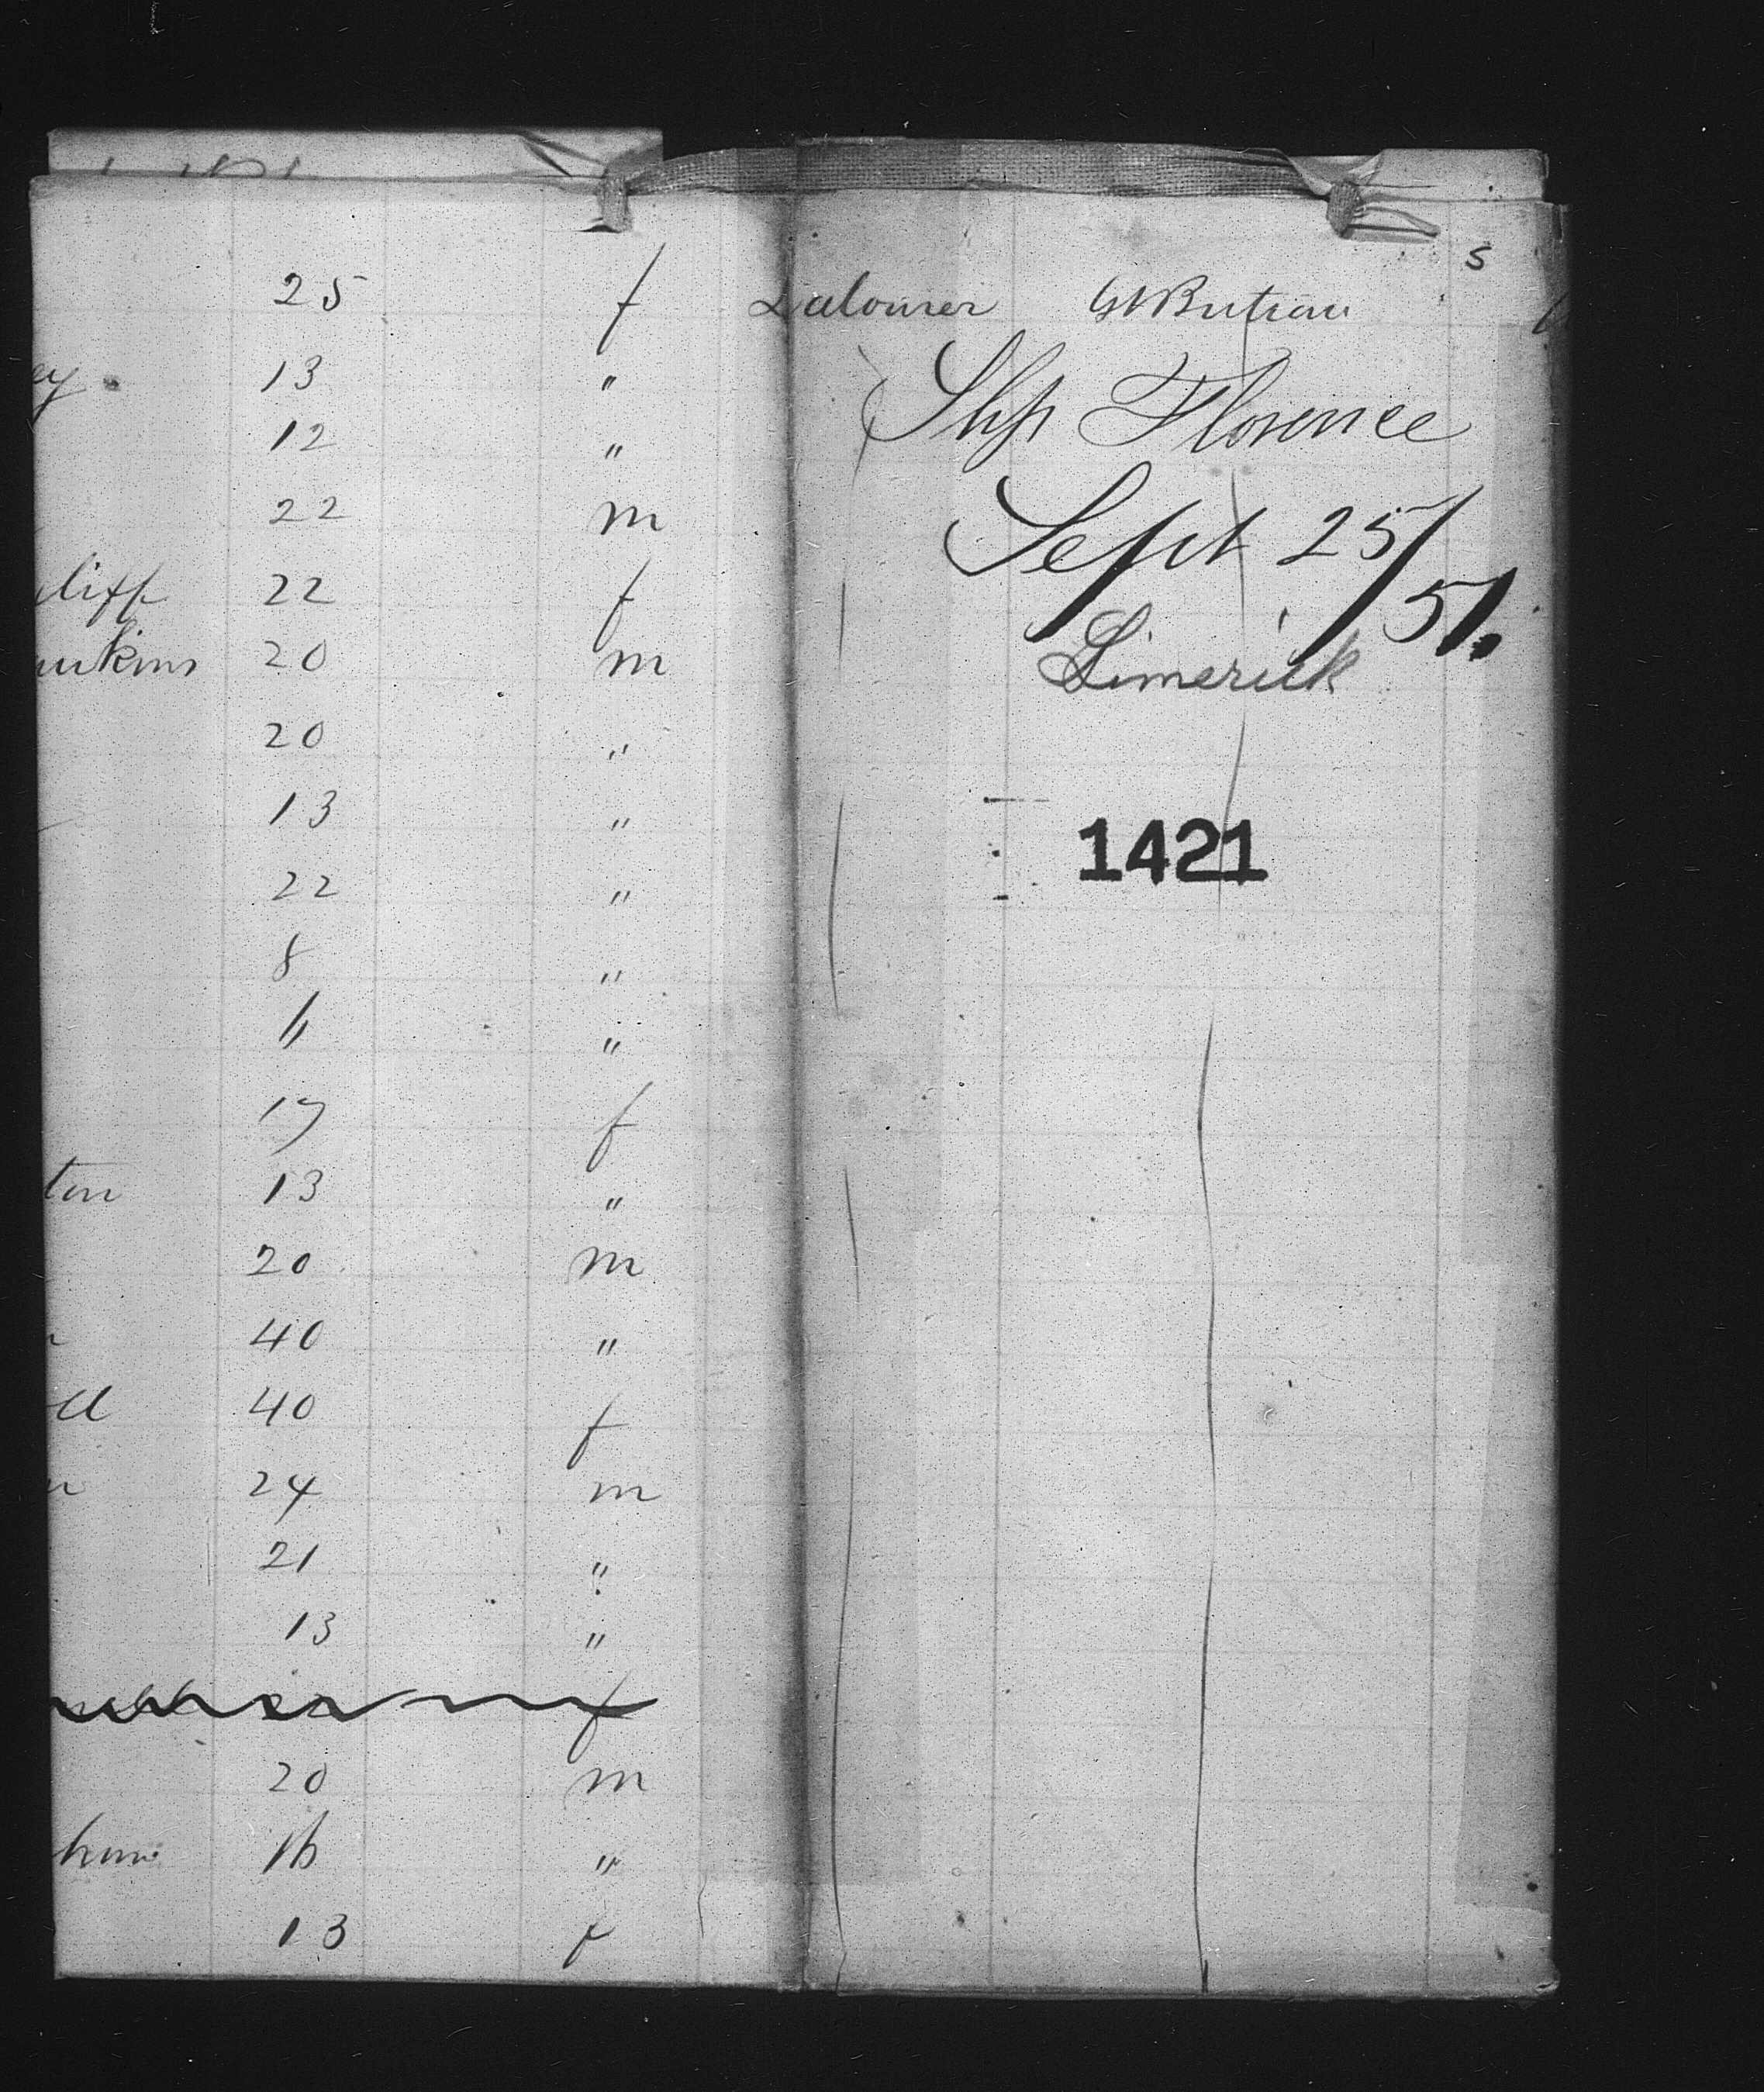 25 f Labourer Gt Britain
s
ey 13 "
Ship Florence
12 "
22 m
Sept 25/51.
cliff 22 f
20 m
Limerick
20 "
13 "
1421
22 "
8 "
6 "
17 f
ton 13 "
20 m
40 "
ll 40 f
24 m
21 "
13 "
f
20 m
16 "
13 f